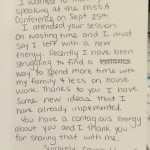 I wanted to thank
speaking at the MSSA
Conference on Sept 25th
I attended your session
on wasting time and I must
say I left with a new
energy. Recently I have been
struggling to find a
way to spend more time with
my family & less on house
work. Thanks to you I have
some new ideas that I
have already implemented.
You have a contagious energy
about you and I thank you
for sharing that with me.
Sincerely,